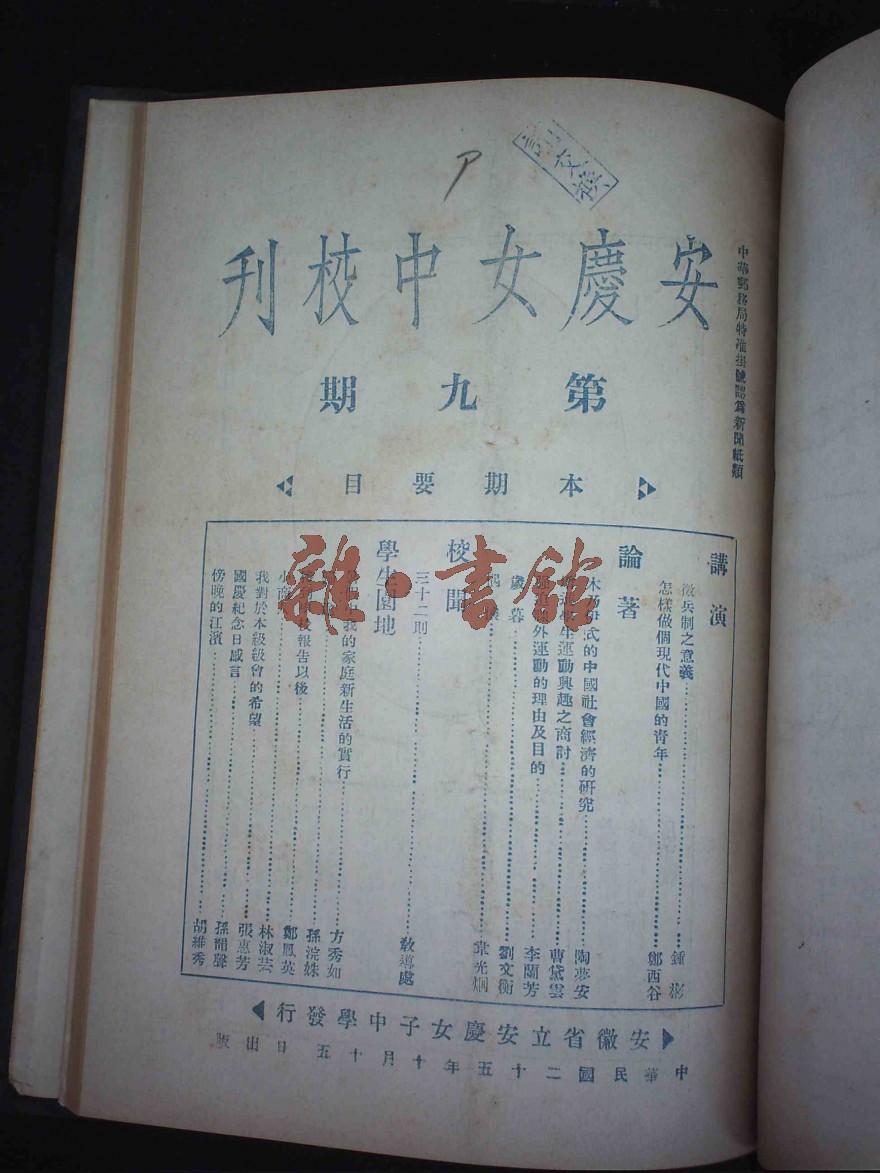 安慶女中校刊
第九期
中華郵務局特准掛號認爲新聞紙類
本期要目
講演
徵兵制之意義 鍾彬
怎樣做個現代中國的青年 鄭西谷
論著
木乃伊式的中國社會經濟的研究 陶夢安
運動興趣之商討 曹黛雲
外運動的理由及目的 李蘭芳
歲暮 劉文衡
韋光烱
校聞
三十二則 教導處
學生園地
我的家庭新生活的實行 方秀如
孫浣姝
報告以後 鄭鳳英
我對於本級級會的希望 林淑芸
國慶紀念日感言 張惠芳
傍晚的江濱 胡維秀
安徽省立安慶女子中學發行
中華民國二十五年十月十五日出版
雜·書館